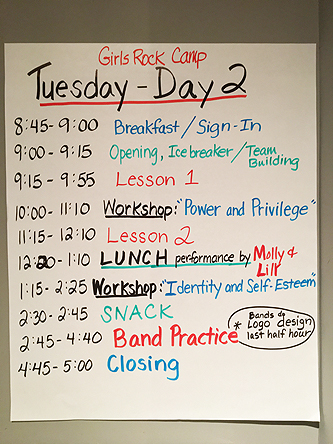 Girls Rock Camp
Tuesday - Day 2
8:45 - 9:00 Breakfast / Sign-In
9:00 - 9:15 Opening, Icebreaker / Team Building
9:15 - 9:55 Lesson 1
10:00 - 11:10 Workshop: "Power and Privilege"
11:15 - 12:10 Lesson 2
12:20 - 1:10 LUNCH performance by Molly & Lilly
1:15 - 2:25 Workshop: "Identity and Self-Esteem"
2:30 - 2:45 SNACK
2:45 - 4:40 Band Practice
* Bands do Logo design last half hour
4:45 - 5:00 Closing